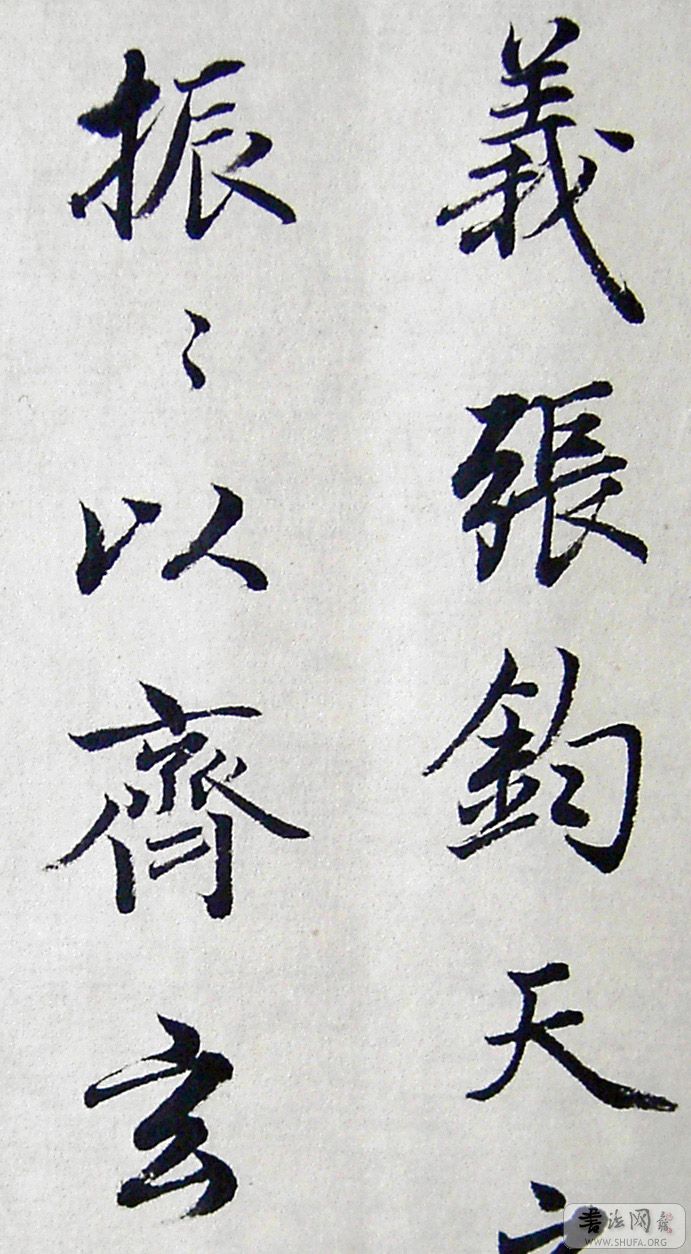 義張鈞天
振〻以齊玄
書法网
WWW.SHUFA.ORG